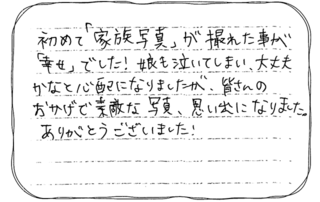 初めて「家族写真」が撮れた事が
「幸せ」でした！娘も泣いてしまい、大丈夫
かなと心配になりましたが、皆さんの
おかげで素敵な写真、思い出になりました。
ありがとうございました！